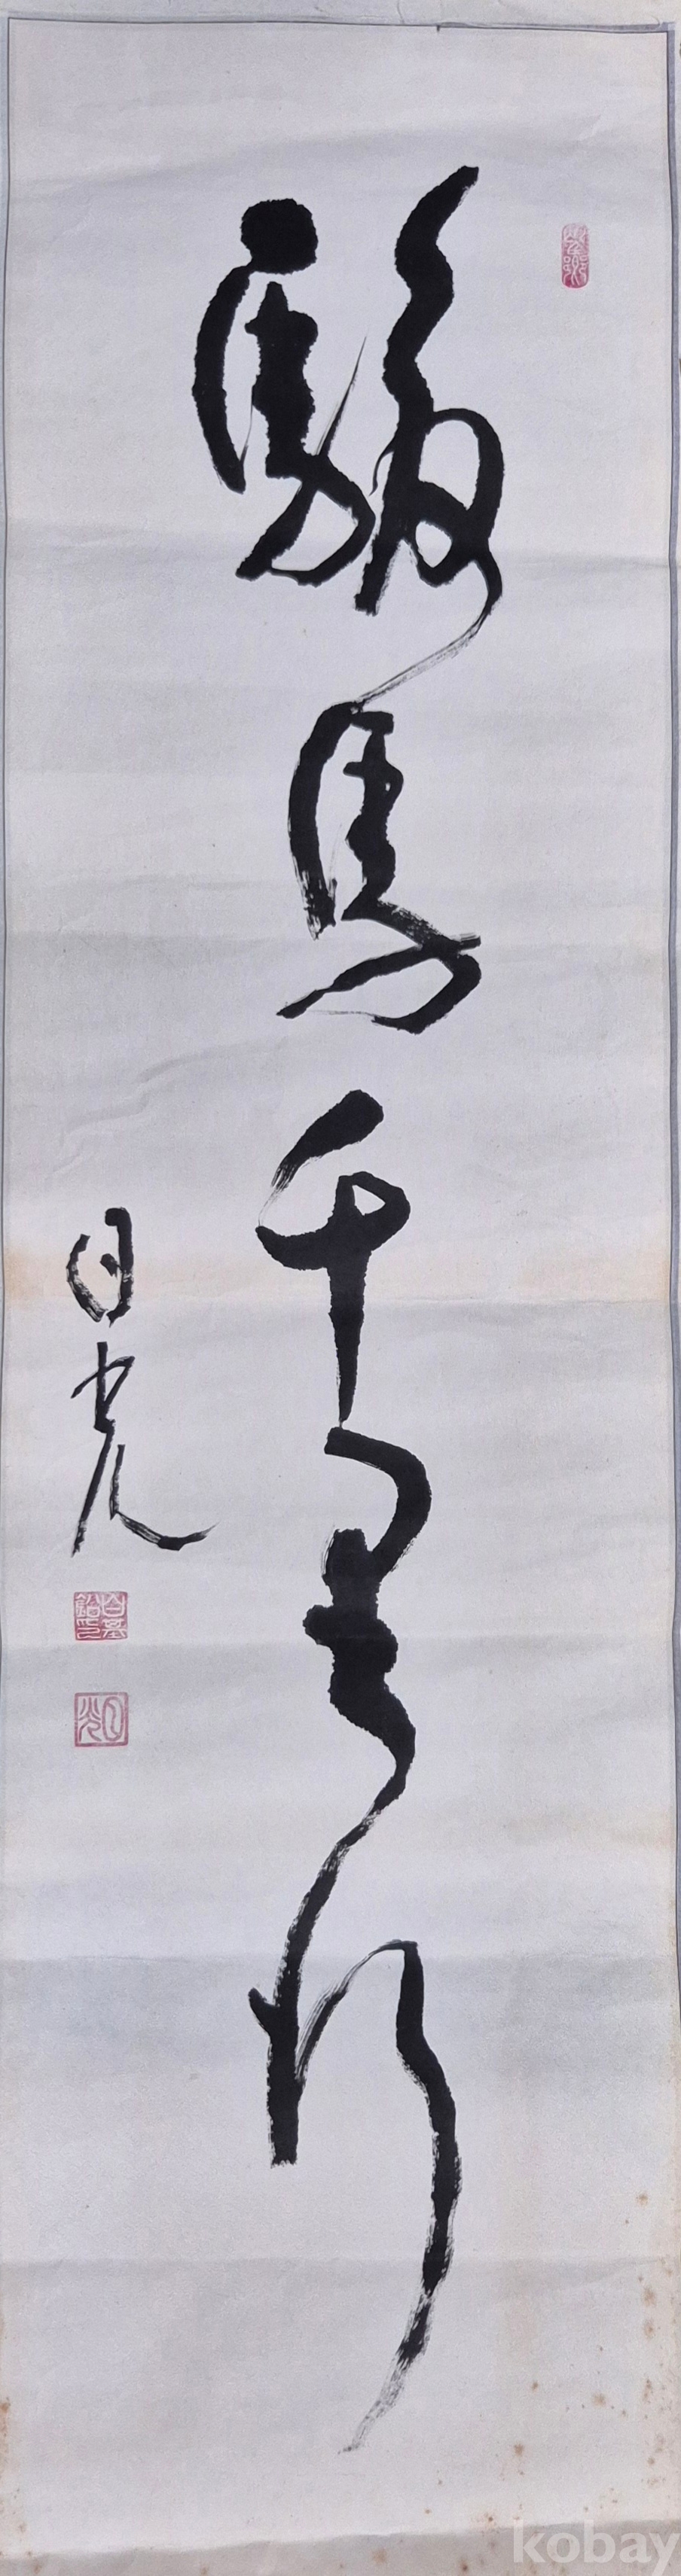 駿馬千里行
日光
kobay